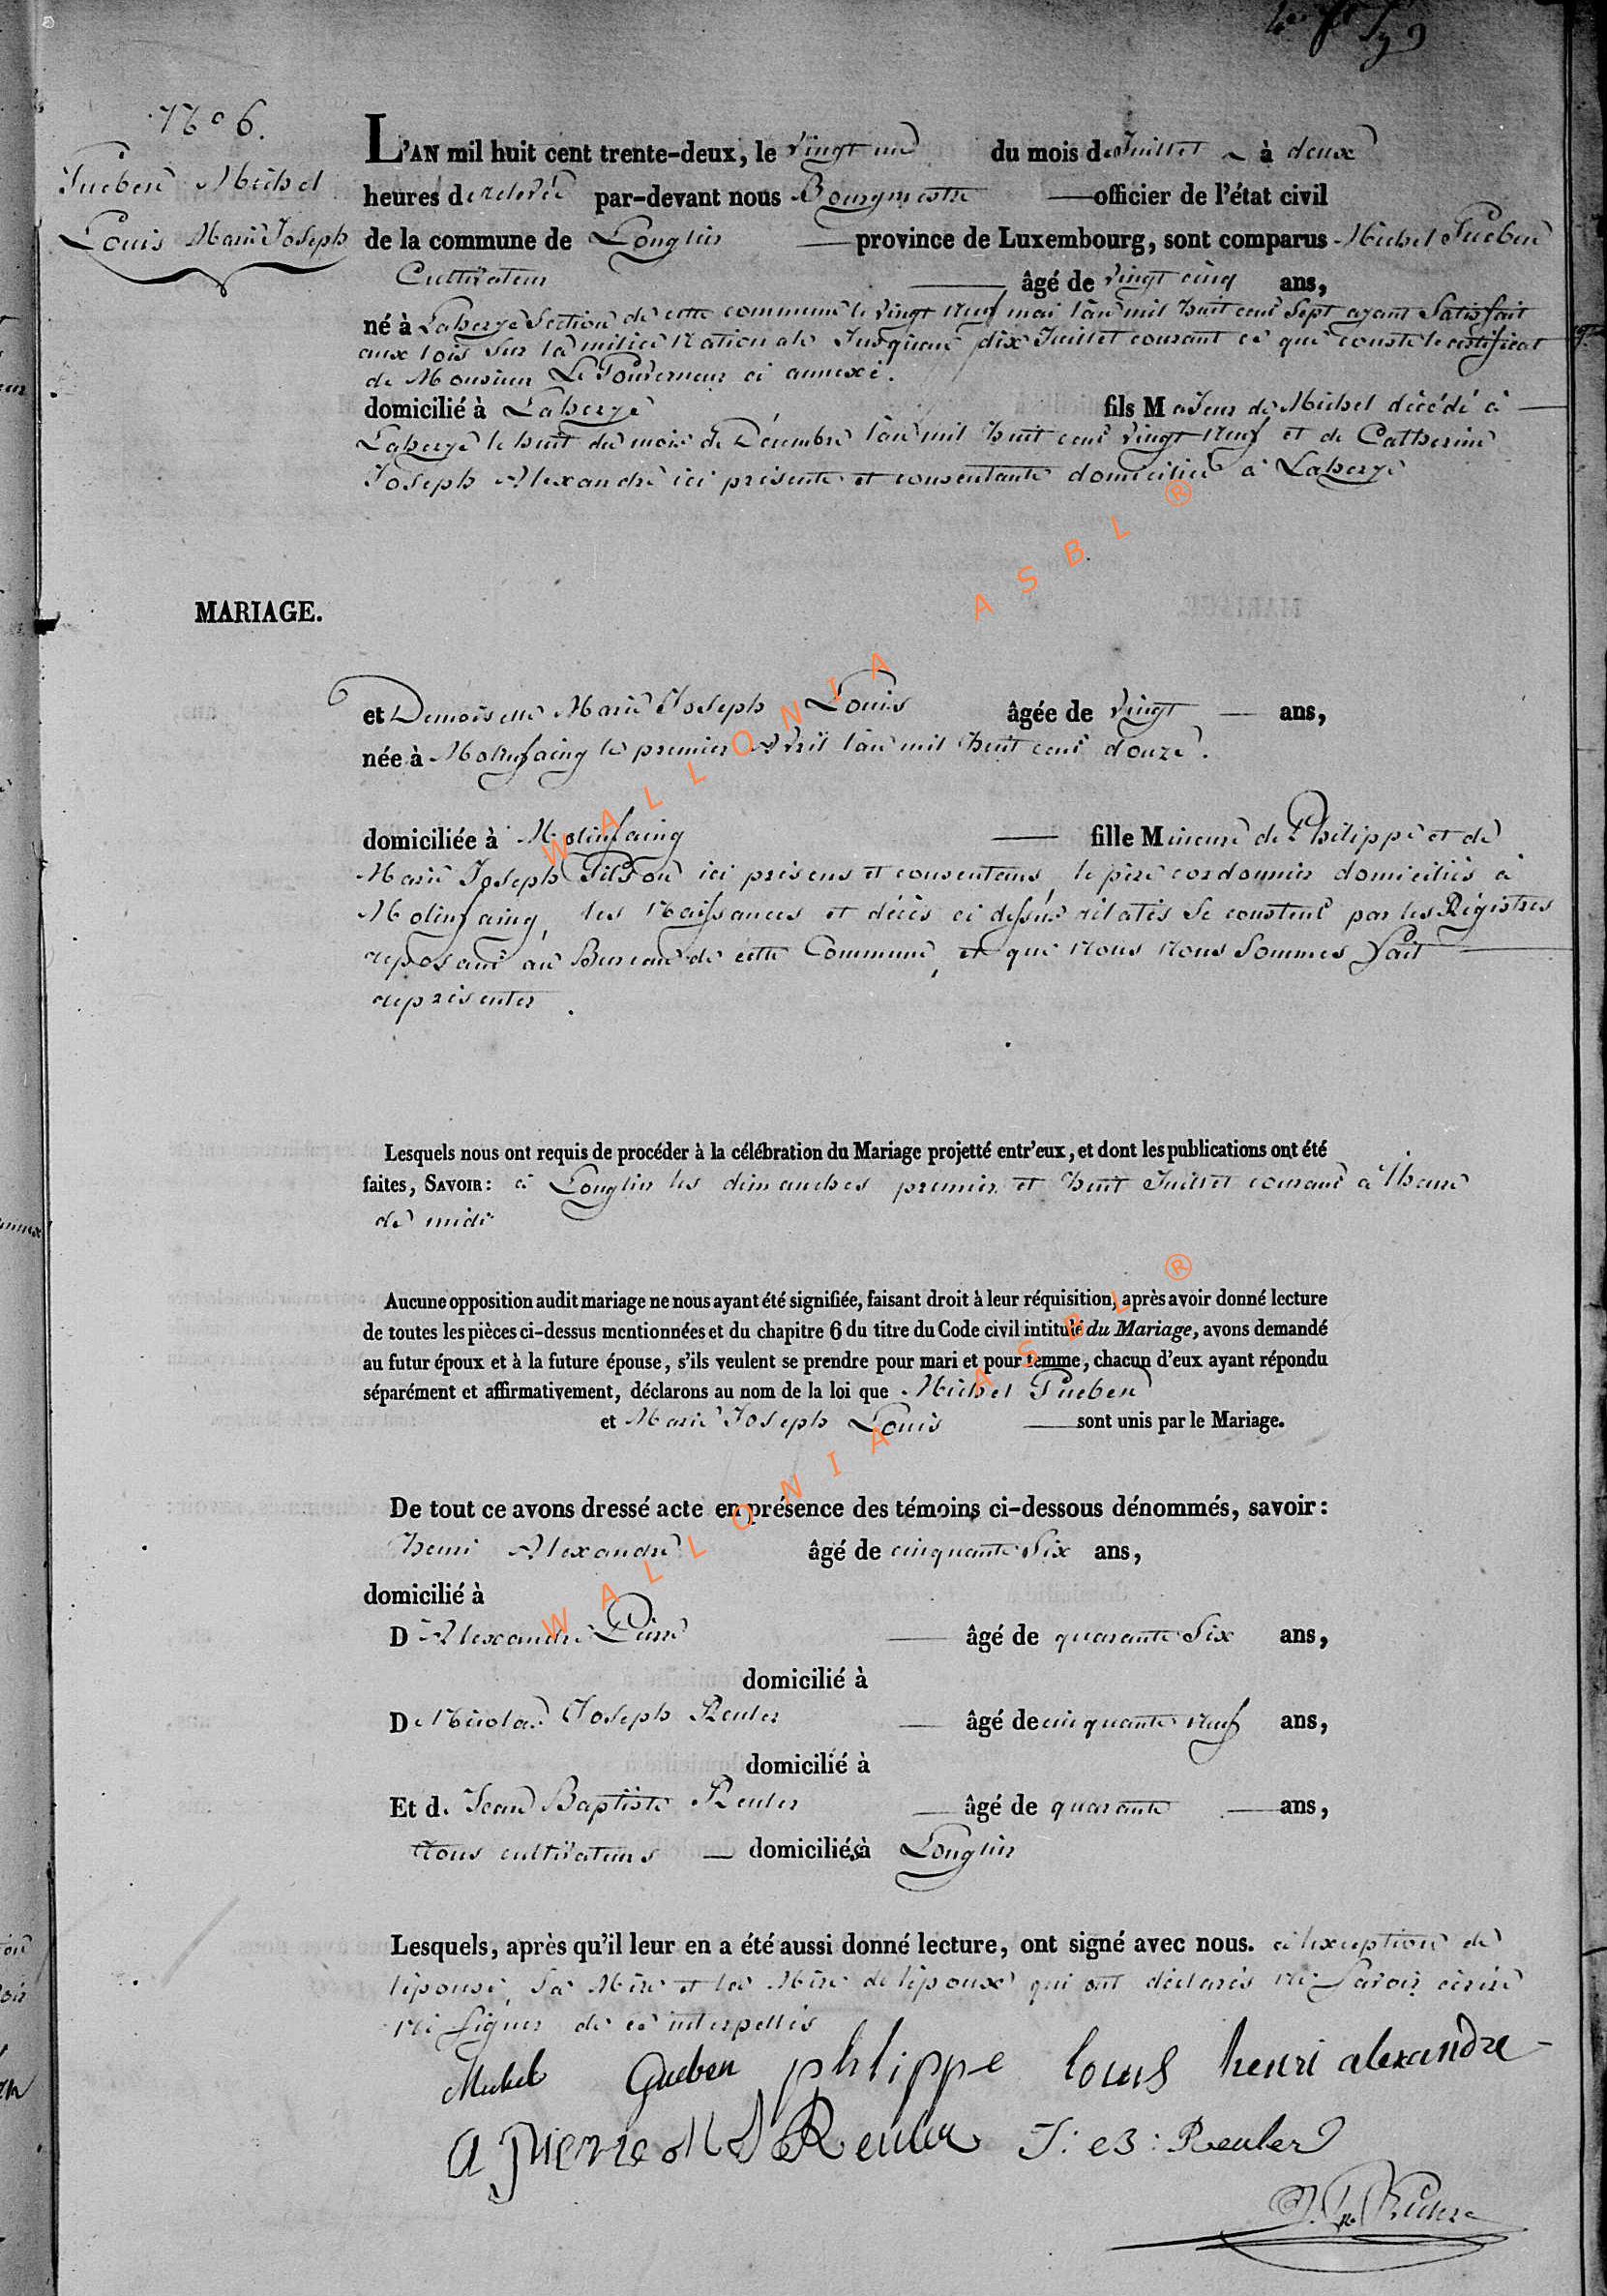 N° 6.
Gueben Michel
Louis Marie Joseph
L'AN mil huit cent trente-deux, le vingt un du mois de Juillet à deux
heures de relevée par-devant nous Bourgmestre officier de l'état civil
de la commune de Longlier province de Luxembourg, sont comparus Michel Gueben
Cultivateur âgé de vingt cinq ans,
né à Laherye Section de cette commune le vingt neuf mai l'an mil huit cent Sept ayant Satisfait
aux lois sur la milice Nationale Jusqu'au dix Juillet courant ce que conste le certificat
de Monsieur Le Gouverneur ci annexé.
domicilié à Laherye fils Majeur de Michel décédé à
Laherye le huit du mois de Décembre l'an mil huit cent vingt neuf et de Catherine
Joseph Alexandre ici présente et consentante domiciliée à Laherye
MARIAGE.
et Demoiselle Marie Joseph Louis âgée de vingt ans,
née à Molinfaing le premier Avril l'an mil huit cent douze.
domiciliée à Molinfaing fille Mineure de Philippe et de
Marie Joseph Gilson ici présens et consentans, le père cordonnier domiciliés à
Molinfaing, les Naissances et décès ci dessus rélatés se constent par les Régistres
reposant au Bureau de cette Commune, et que Nous Nous Sommes fait
représenter.
Lesquels nous ont requis de procéder à la célébration du Mariage projetté entr'eux, et dont les publications ont été
faites, SAVOIR: à Longlier les dimanches premier et huit Juillet courant à l'heure
de midi
Aucune opposition audit mariage ne nous ayant été signifiée, faisant droit à leur réquisition, après avoir donné lecture
de toutes les pièces ci-dessus mentionnées et du chapitre 6 du titre du Code civil intitulé du Mariage, avons demandé
au futur époux et à la future épouse, s'ils veulent se prendre pour mari et pour femme, chacun d'eux ayant répondu
séparément et affirmativement, déclarons au nom de la loi que Michel Gueben
et Marie Joseph Louis sont unis par le Mariage.
De tout ce avons dressé acte en présence des témoins ci-dessous dénommés, savoir:
henri Alexandre âgé de cinquante Six ans,
domicilié à
D'Alexandre Pierre âgé de quarante Six ans,
domicilié à
De Nicolas Joseph Reuler âgé de cinquante neuf ans,
domicilié à
Et de Jean Baptiste Reuler âgé de quarante ans,
tous cultivateurs domiciliés à Longlier
Lesquels, après qu'il leur en a été aussi donné lecture, ont signé avec nous. à l'exception de
l'épouse, sa Mère et la Mère de l'époux qui ont déclarés ne Savoir écrire
ni Signer de ce interpellés
Michel Gueben philippe louis henri alexandre
a pierre N J Reuler J: B: Reuler
WALLONIA ASBL ®
WALLONIA ASBL ®